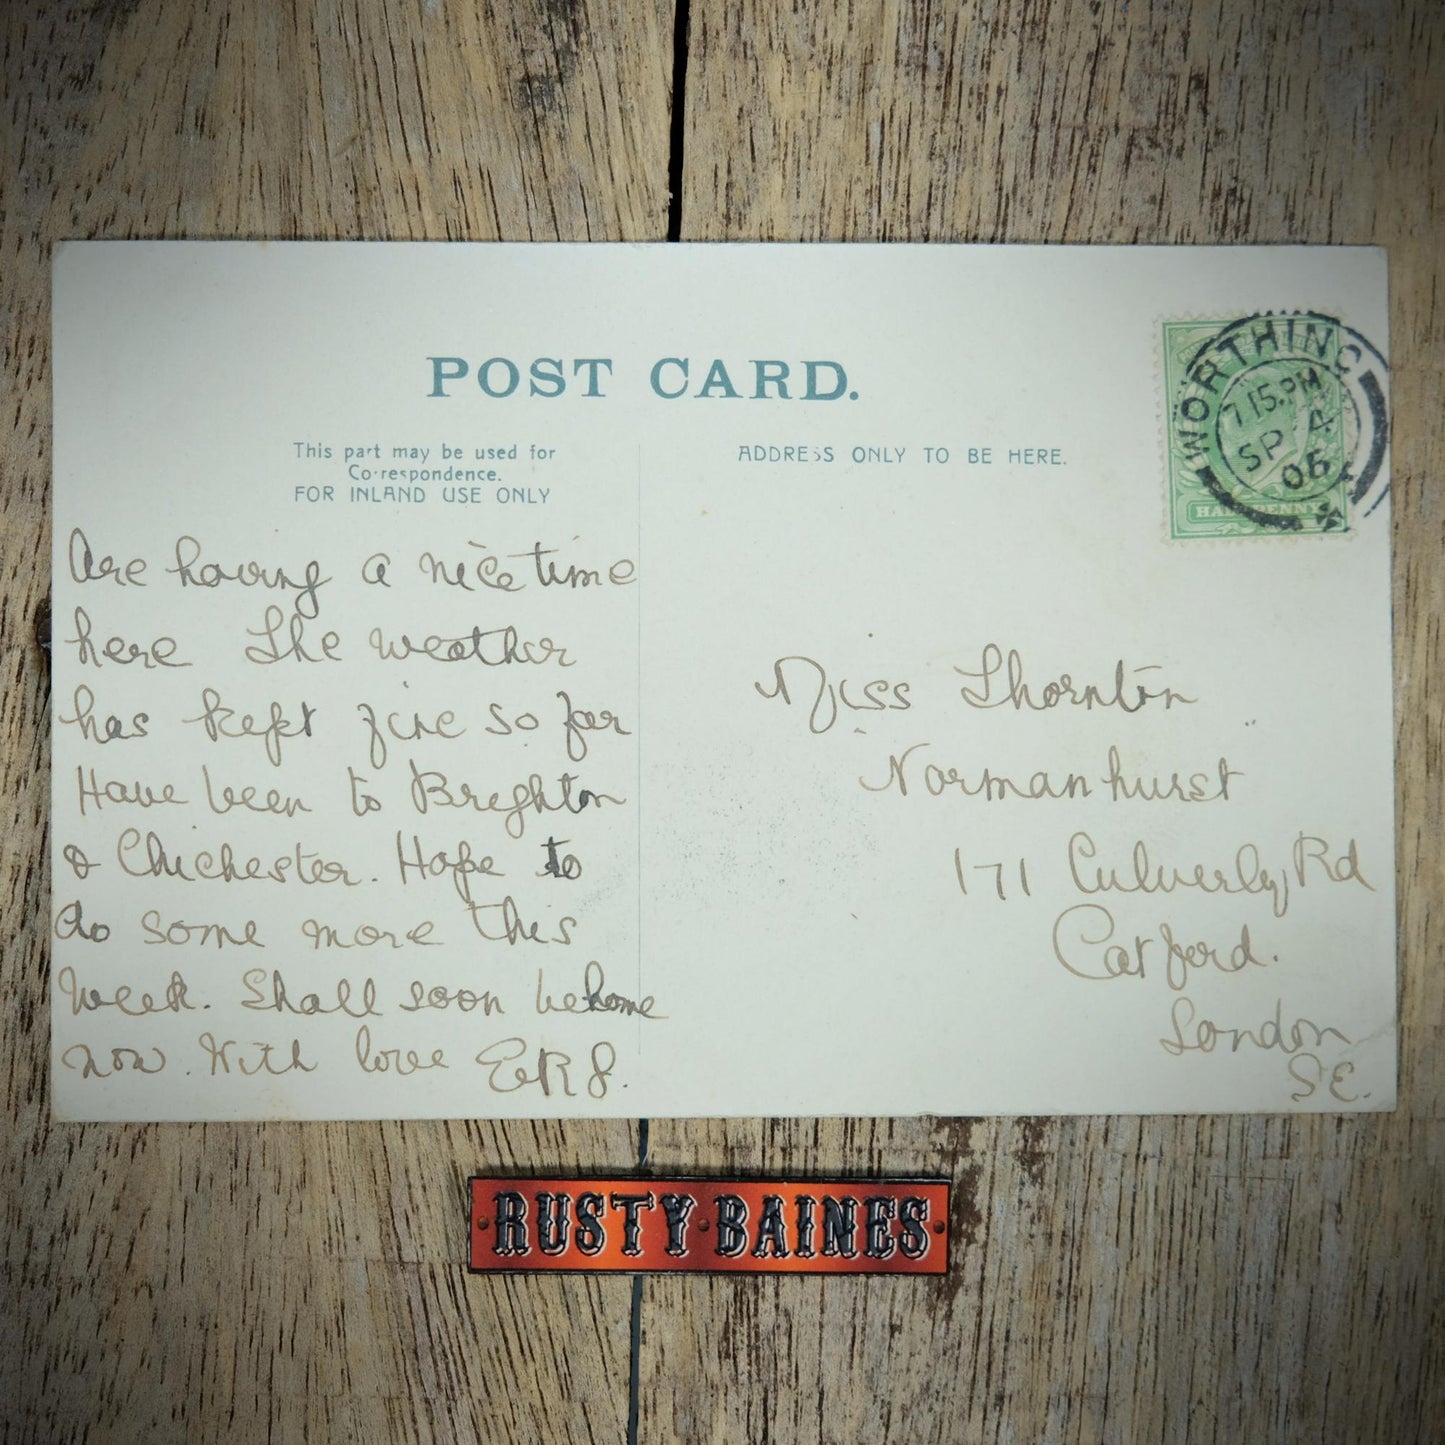 POST CARD.
This part may be used for
Correspondence.
FOR INLAND USE ONLY
ADDRESS ONLY TO BE HERE.
WORTHING
7.15.PM
SP 4
06
HALFPENNY
Are having a nice time
here The weather
has kept fine so far
Have been to Brighton
& Chichester. Hope to
do some more this
week. Shall soon be home
now. With love
Miss Thornton
Normanhurst
171 Culverly Rd
Catford.
London
S.E.
RUSTY BAINES